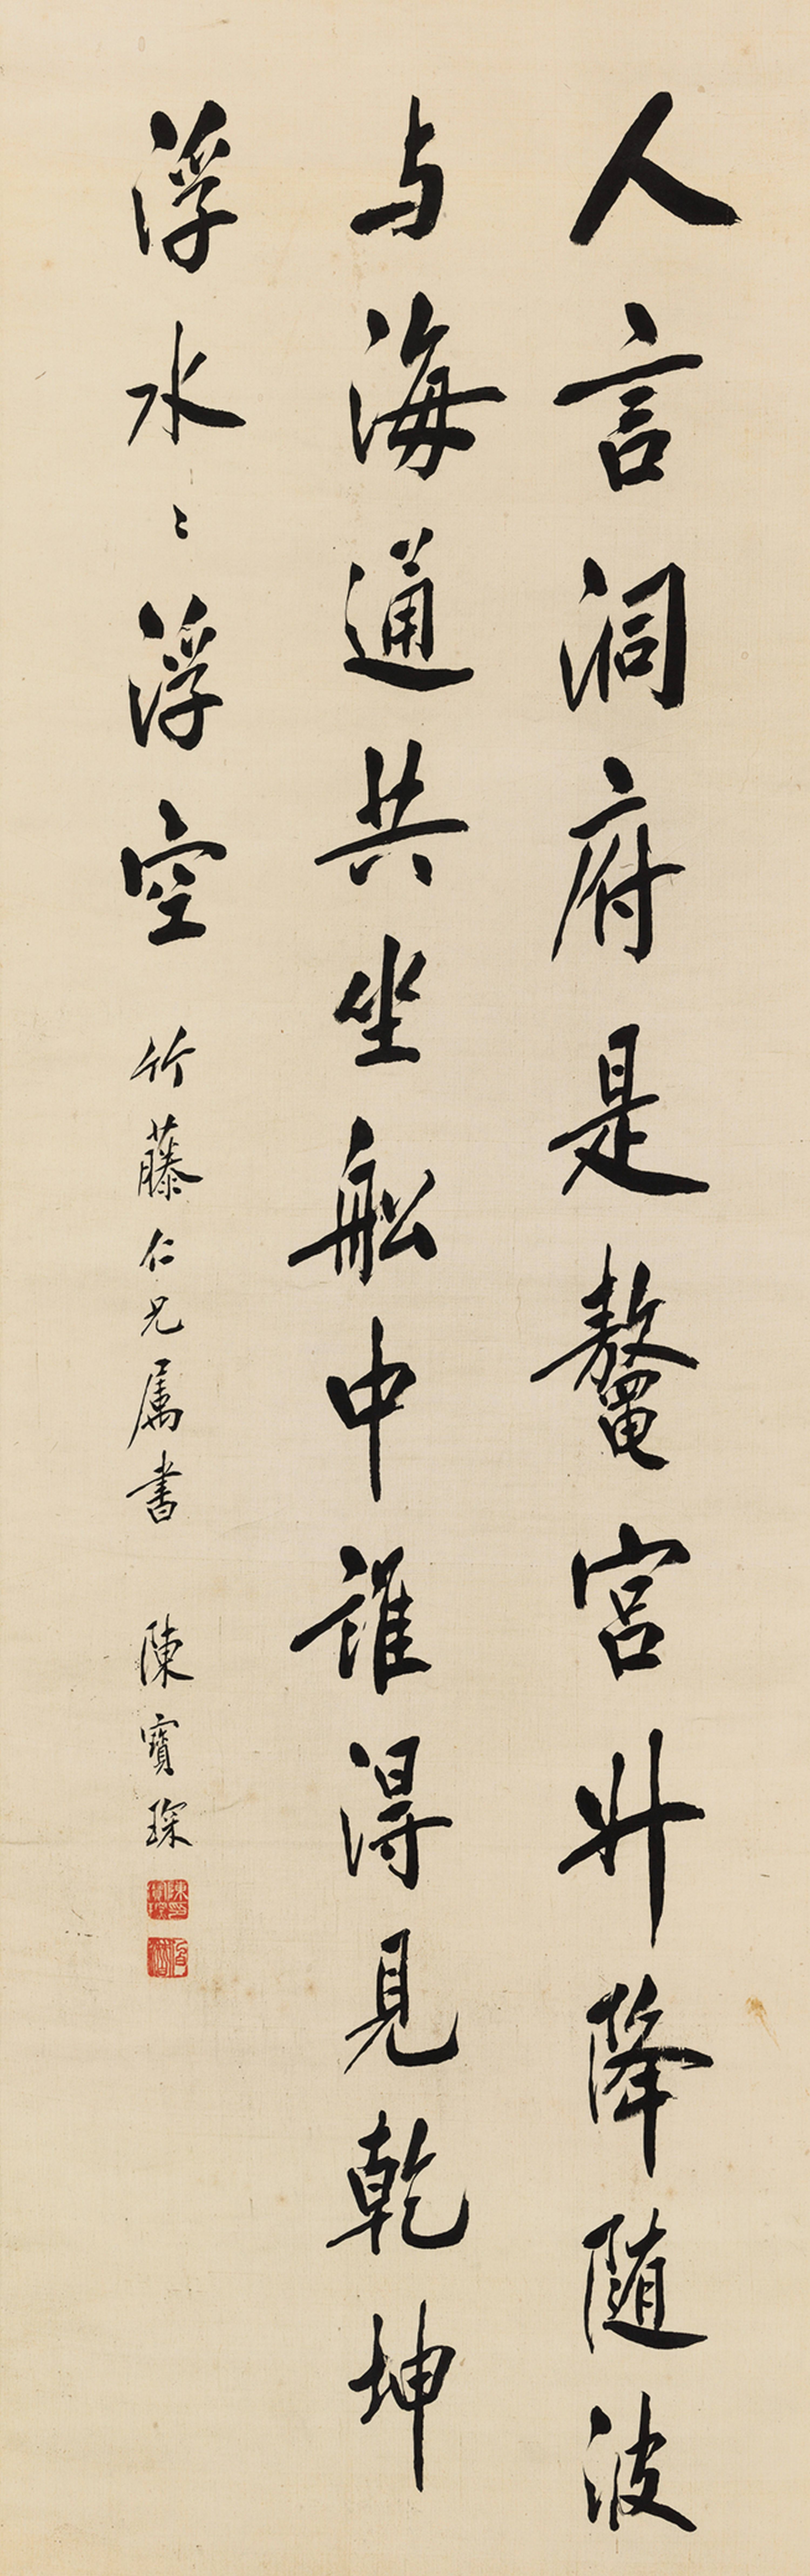 人言洞府是鼇宮升降随波
与海通共坐船中誰得見乾坤
浮水〻浮空 竹藤仁兄属書 陳寶琛